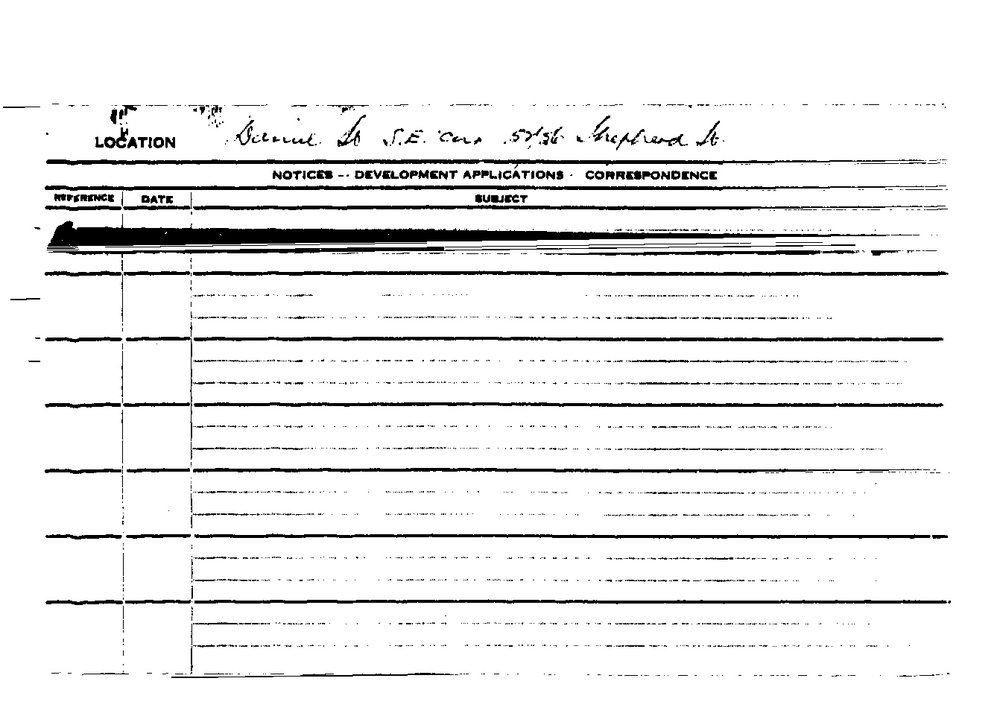 LOCATION Daniel St S.E. Cnr Shepherd St.
NOTICES -- DEVELOPMENT APPLICATIONS - CORRESPONDENCE
REFERENCE DATE SUBJECT